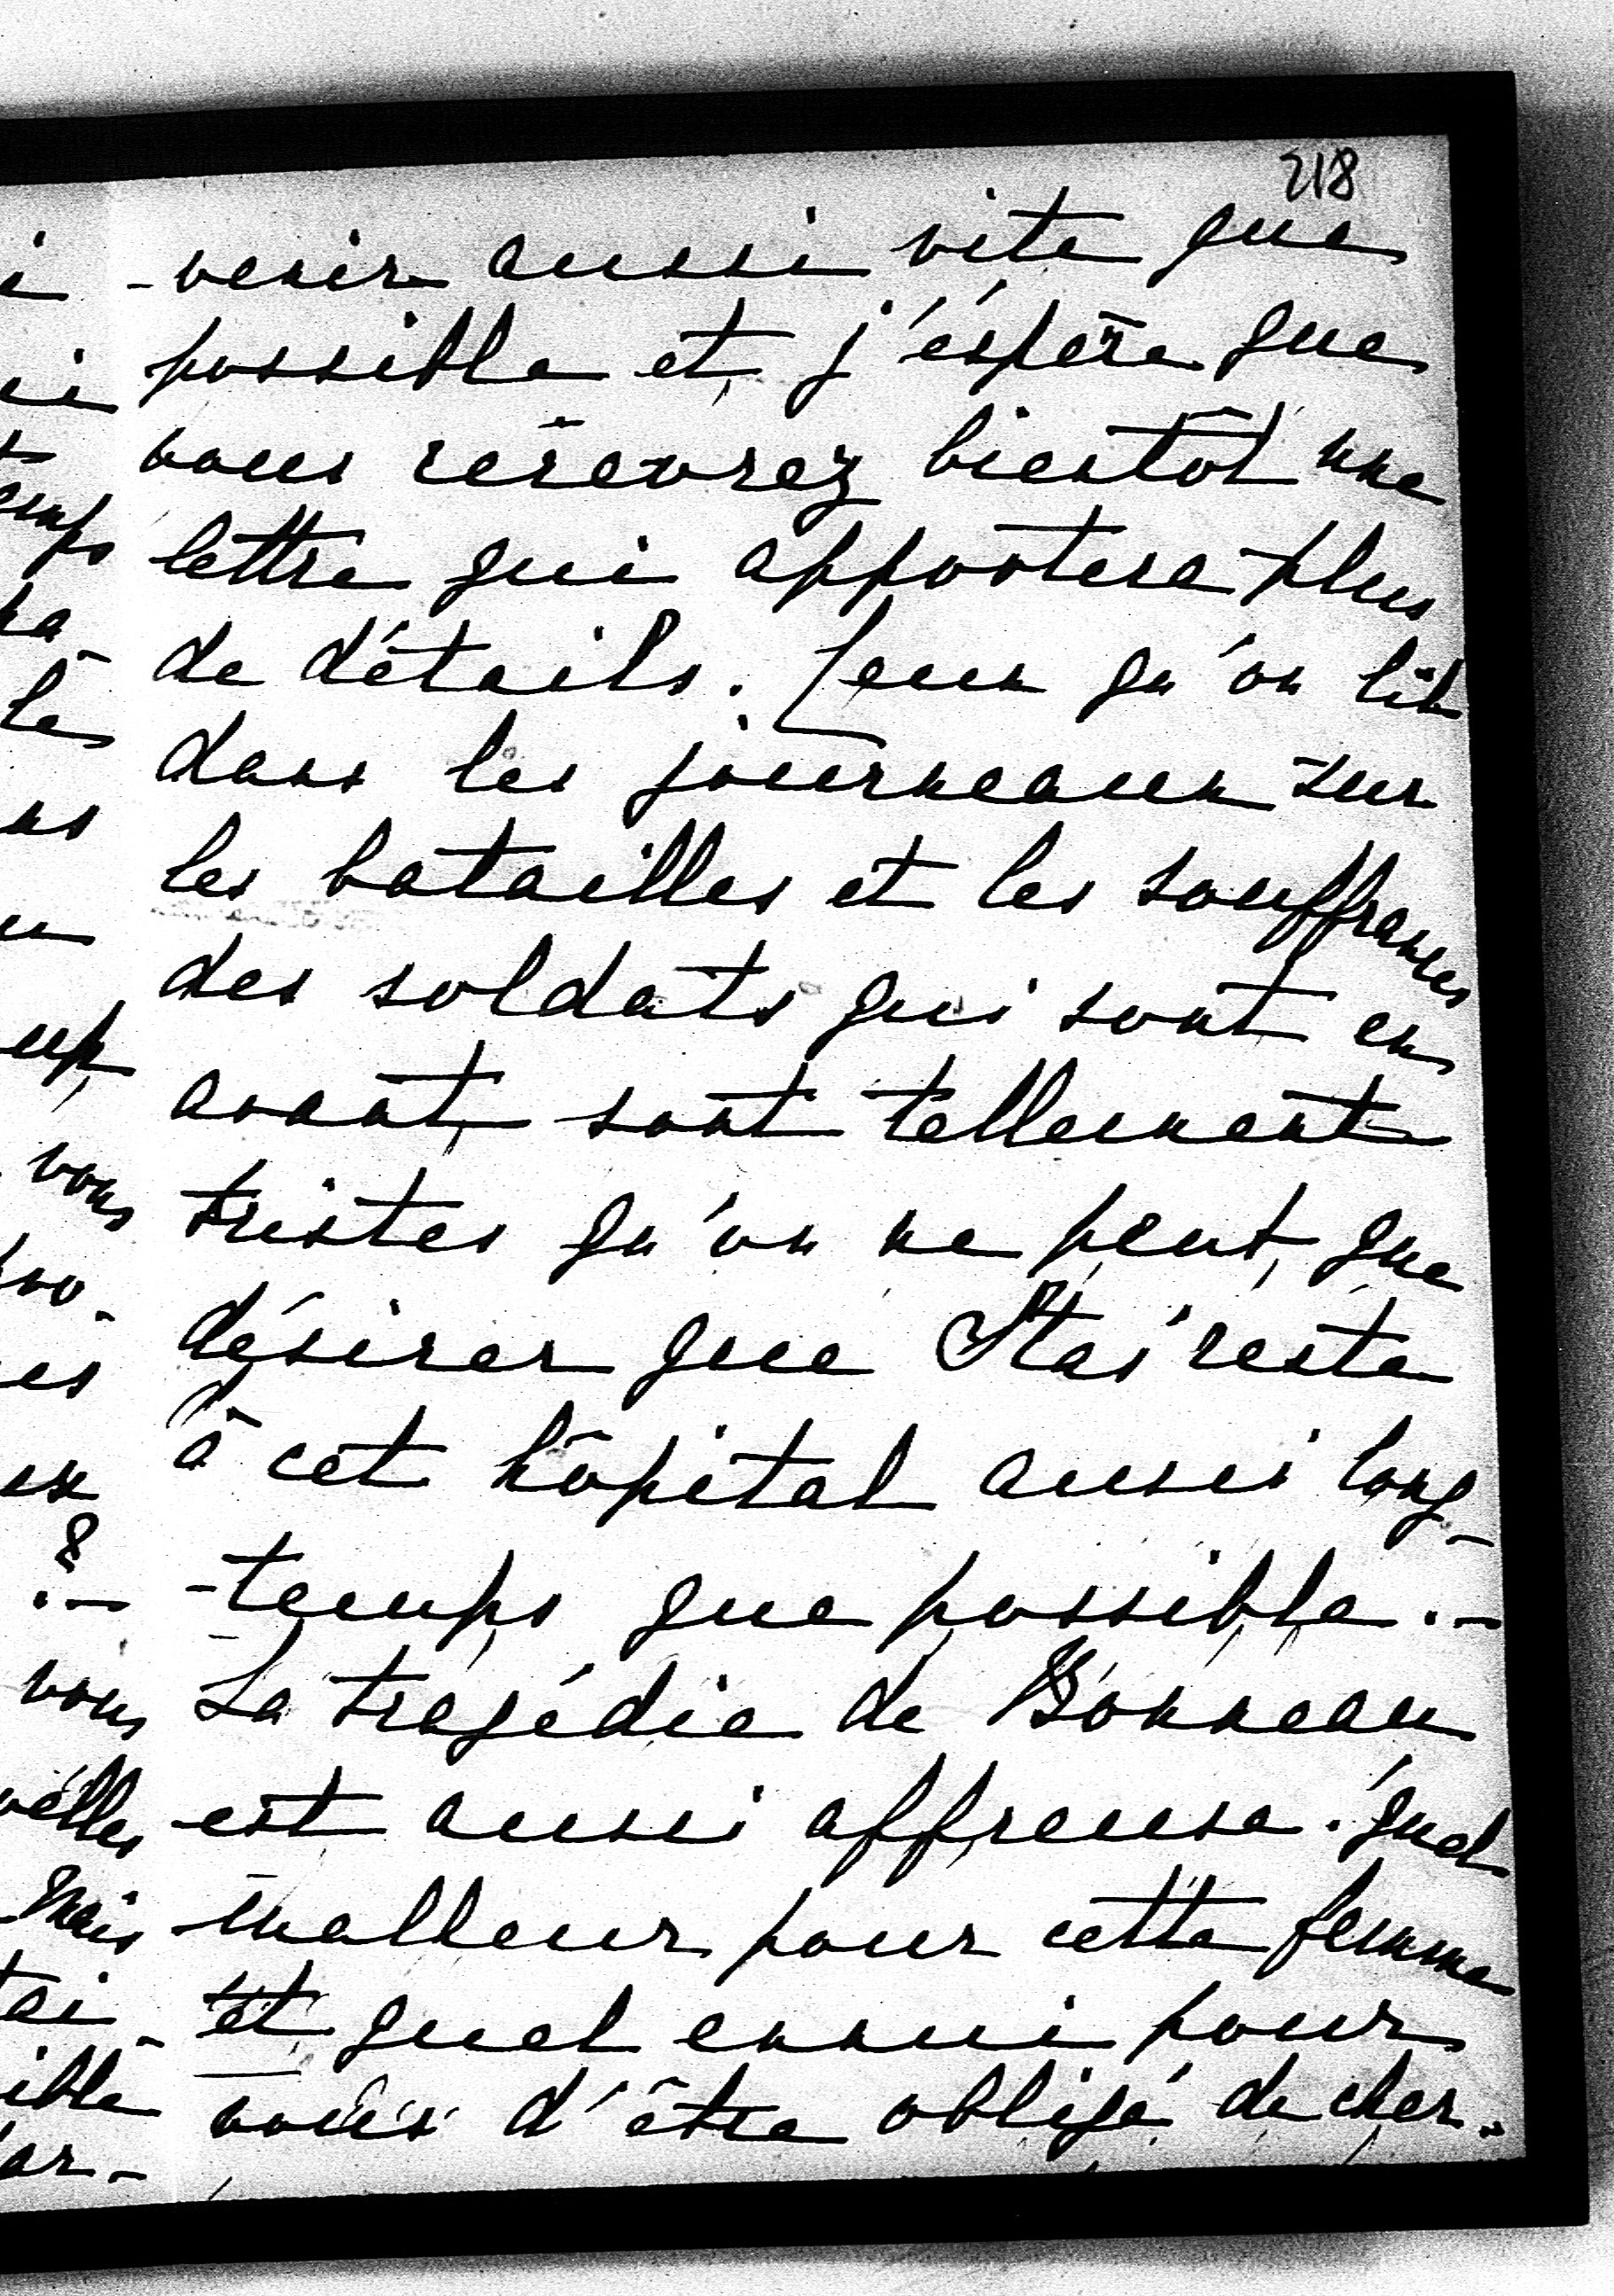 218
-venir aussi vite que
possible et j'éspère que
vous recevrez bientôt une
lettre qui apportera plus
de détails. qu'on lit
dans les journeaux sur
les batailles et les souffrances
des soldats qui sont en
avant, sont tellement
tristes qu'on ne peut que
désirer que Stas' reste
à cet hôpital aussi long-
-temps que possible.-
La tragédie de Bonneau
est aussi affreuse. Quel
malheur pour cette femme
et quel ennui pour
vous d'être obligé de cher-